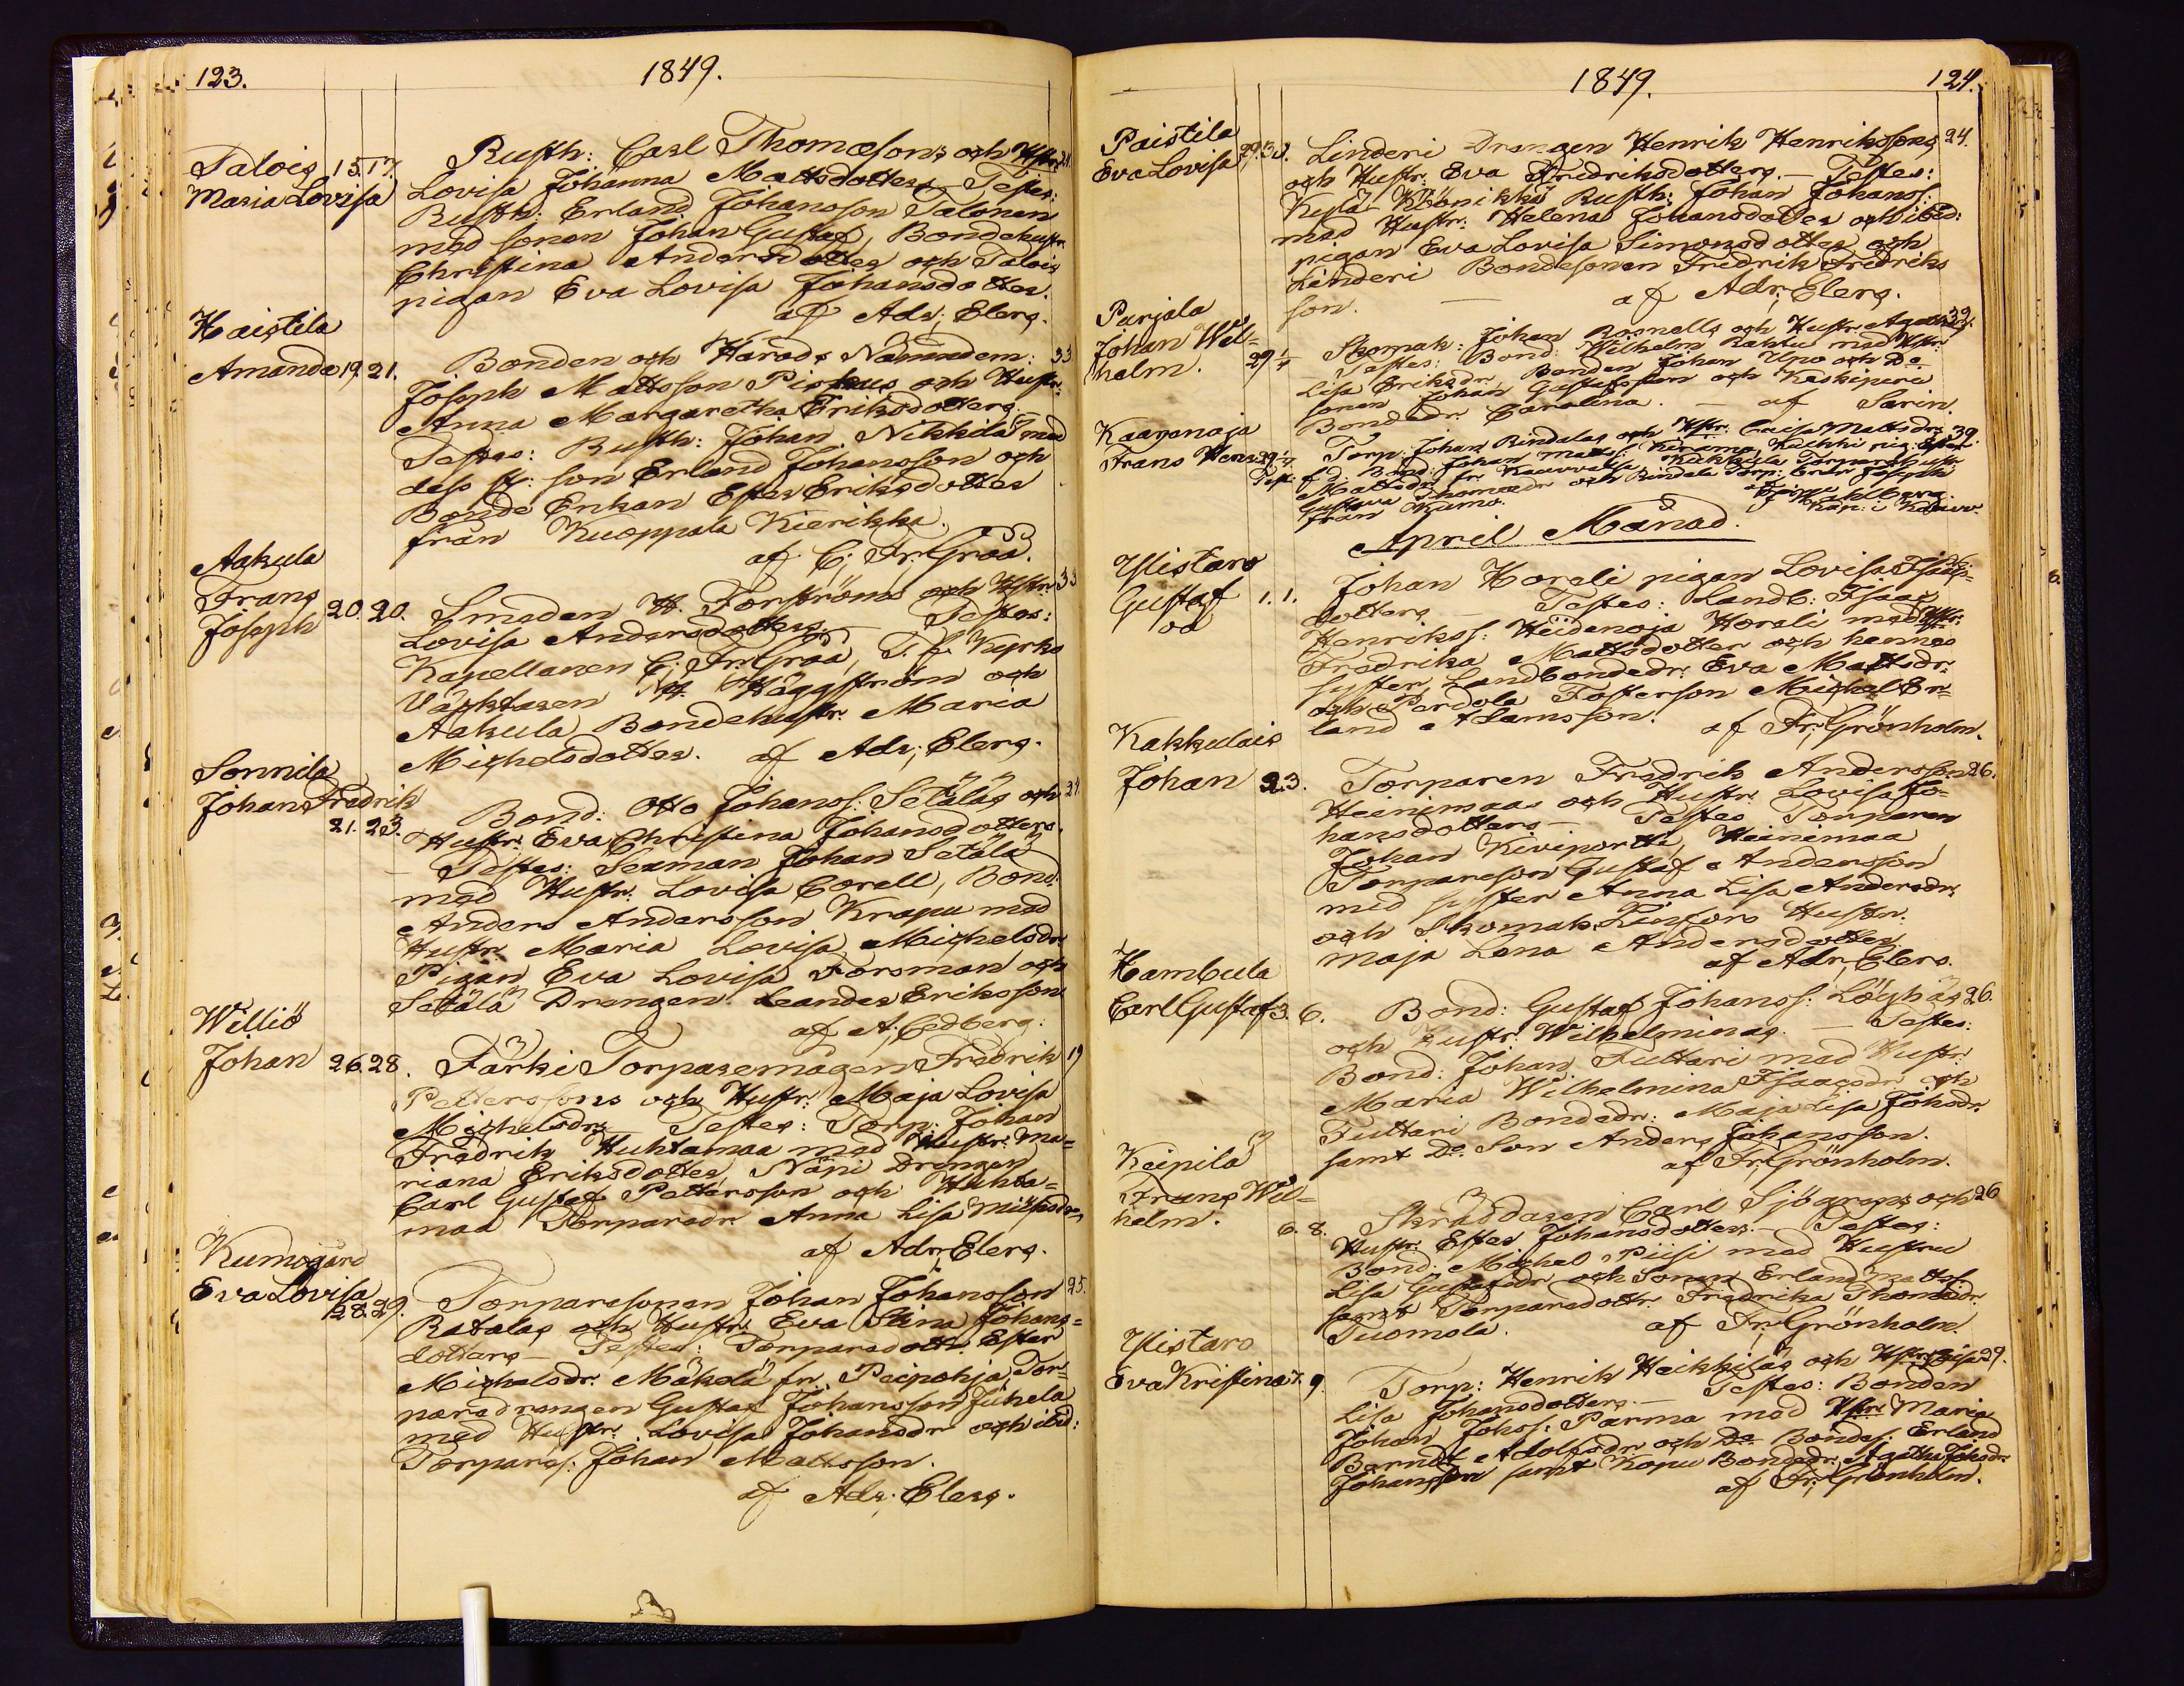 123.
1849.
Talois 15. 17.
Maria Lovisa
Rusth: Carl Thomæsons och Hstr. 21.
Lovisa Johanna Mattsdotters Testes:
Rusth: Erland Johansson Talonen
med sonen Johan Gustaf, Bondehustr.
Christina Andersdotter och Talois
pigan Eva Lovisa Johansdotter.
af Adr; Elers.
Haistila
Amanda 19. 21.
Bonden och Härads Nämndem: 33
Joseph Mattsson Piskus och Hustr:
Anna Margaretha Eriksdotters.
Testes: Rusth: Johan Nikkilä med
dess st: son Erland Johansson och
Bonde Enkan Ester Eriksdotter
från Kuoppala Kierikka.
af C; Fr. Graä.
Aakula
Frans
Joseph 20. 20.
Smeden H. Forströms och Hstr. 33
Lovisa Andersdotters. Testes:
Kapellanen C; Fr. Graä, T. f. Kyrko
Väcktaren H. Häggström och
Aakula Bondehustr. Maria
Michelsdotter. af Adr; Elers.
Sonnila
Johan Fredrik
21. 23.
Bond: Otto Johanss: Setäläs och 24.
Hustr. Eva Christina Johansdotters.
Testes: Sexman Johan Setälä
med Hustr. Lovisa Corell, Bond:
Anders Andersson Krapu med
Hustr. Maria Lovisa Michelsdr.
Pigan Eva Lovisa Forsman och
Setälä Drengen Leander Eriksson
af A; Cedberg.
Williö
Johan 26. 28.
Färki Torparemågen Fredrik 19
Pettersssons och Hustr: Maja Lovisa
Michelsdrs Testes: Torp: Johan
Fredrik Huhtamaa med Hustr: Ma=
riana Eriksdotter, Näpi Drengen
Carl Gustaf Pettersson och Huhta=
maa Torparedr. Anna Lisa
af Adr; Elers.
Kumogård
Eva Lovisa
28. 29.
Torparesonen Johan Johansson 25.
Ratalas och Hustr. Eva Stina Johans=
dotters Testes: Torparedottr. Ester
Michelsdr. Mäkelä fr. Peipohja, Tor=
paredrengen Gustaf Johansson Juhela
med Hustr: Lovisa Johansdr. och ibid:
Torpares: Johan Mattsson.
af Adr. Elers.
1849. 124.
Paistila
Eva Lovisa 29. 30.
Linderi Drengen Henrik Henrikssons 24.
och Hustr. Eva Fredriksdotters. — Testes:
Kylä Köönikkä Rusth: Johan Johanss:
med Hustr: Helena Johansdotter och ibid:
pigan Eva Lovisa Simonsdotter och
Linderi Bondesonen Fredrik Fredriks
son. — af Adr; Elers.
Purjala
Johan Wil=
helm. 29 1/4
Skomak: Johan Rosnells och Hustr. Agath 32
Testes: Bond: Wilhelm med Hstr:
Lisa Eriksdr., Bonden Johan Upo och Do.
sonen Johan Gustafsson och Keskiperi
Bondedr. Carolina. — af Sarin.
Kaaranoja
Frans Hens. 29 1/4
Torp: Johan Rindalas och Hstr. Caisa Mattsdrs 39.
Test: f. d. Bond: Johan
Mattsdr. fr. Kauvatsa
Gustava Thomædr. och Rindala Torp: Enk: Joseph
från Kumo. af Wahlberg.
Kap: i Kauv.
April Månad.
Yllistaro
Gustaf 1. 1.
oä
Johan Korali pigan Lovisa Isaacs=
dotters Testes: Landb: Isaac
Henrikss: Heidenoja Horali med Hstr:
Fredrika Mattsdotter och hennes
syster Landbondedr. Eva Mattsdr.
och Perdola Fosterson Michel Er=
land Adamsson. af Fr; Grönholm.
Kakkulais
Johan 2. 3.
Torparen Fredrik Andersson 26.
Heinimaas och Hustr. Lovisa Jo=
hansdotters — Testes Torparen
Johan Kiviportti, Heinimaa
Torpareson Gustaf Andersson
med syster Anna Lisa Andersdr.
och Skomak: Finfors Hustr.
Maja Lena Andersdotter.
af Adr, Elers.
Kambula
Carl Gustaf 3. 6.
Bond: Gustaf Johanss: Löyhäs 26.
och Hustr. Wilhelminas. — Testes:
Bond: Johan Juttari med Hustr:
Maria Wilhelmina Isaacsdr. och
Juttari Bondedr. Maja Lisa Johsdr.
samt Do. Son Anders Johansson.
af Fr, Grönholm.
Keipilä
Frans Wil=
helm. 6. 8.
Skräddaren Carl Sjögrens och 26
Hustr. Ester Johansdotters. Testes:
Bond: Michel Piisi med Hustru
Lisa Gustafsdr. och Sonen Erland Mattss
samt Torparedottr. Fredrika Thomædr.
Tuomola. af Fr, Grönholm.
Yllistaro
Eva Kristina 7. 9.
Torp: Henrik Heikkiläs och Hstr. Caisa 29.
Lisa Johansdotters. — Testes: Bonden
Johan Johss: Parma med Hstr. Maria
Berndt Adolfsdr. och Do. Bondes. Erland
Johansson samt Kopu Bondedr. Agatha Johsdr.
af Fr; Grönholm.